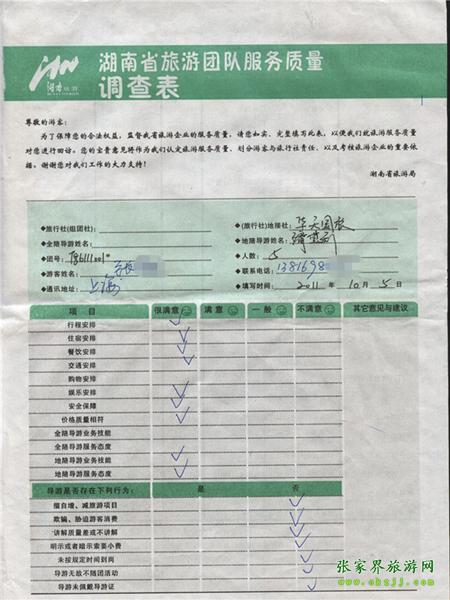 湖南省旅游团队服务质量
调查表
尊敬的游客：
为了保障您的合法权益，监督我省旅游企业的服务质量，请您如实、完整填写此表，以便我们就旅游服务质量
对您进行回访。您的宝贵意见将作为我们认定旅游服务质量、划分游客与旅行社责任、以及考核旅游企业的重要依
据。谢谢您对我们工作的大力支持！
湖南省旅游局
◆旅行社(组团社)： ◆(旅行社)地接社：华天国旅
◆全陪导游姓名： ◆地陪导游姓名：
◆团号： ◆人数：5
◆游客姓名： ◆联系电话：1381698
◆通讯地址：上海 ◆填写时间：2011 年 10 月 5 日
项 目 很满意 满 意 一 般 不满意 其它意见与建议
行程安排
住宿安排
餐饮安排
交通安排
购物安排
娱乐安排
安全保障
价格质量相符
全陪导游业务技能
全陪导游服务态度
地陪导游业务技能
地陪导游服务态度
导游是否存在下列行为： 是 否
擅自增、减旅游项目
欺骗、胁迫游客消费
讲解质量差或不讲解
明示或者暗示索要小费
未按规定时间到岗
导游无故不随团活动
导游未佩戴导游证
张家界旅游网
www.okzjj.com